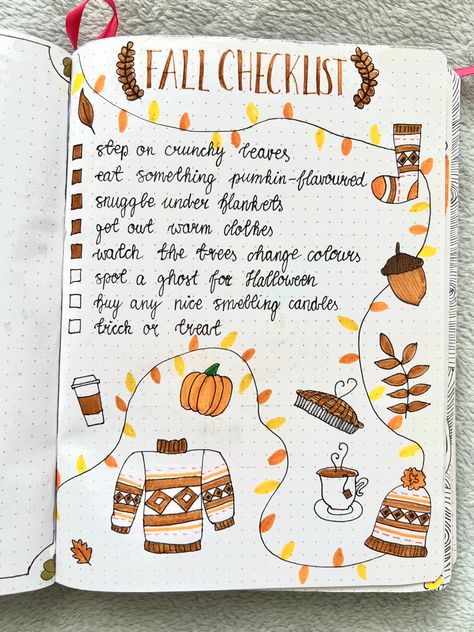 FALL CHECKLIST
step on crunchy leaves
eat something pumkin-flavoured
snuggle under blankets
get out warm clothes
watch the trees change colours
spot a ghost for Halloween
buy any nice smelling candles
trick or treat